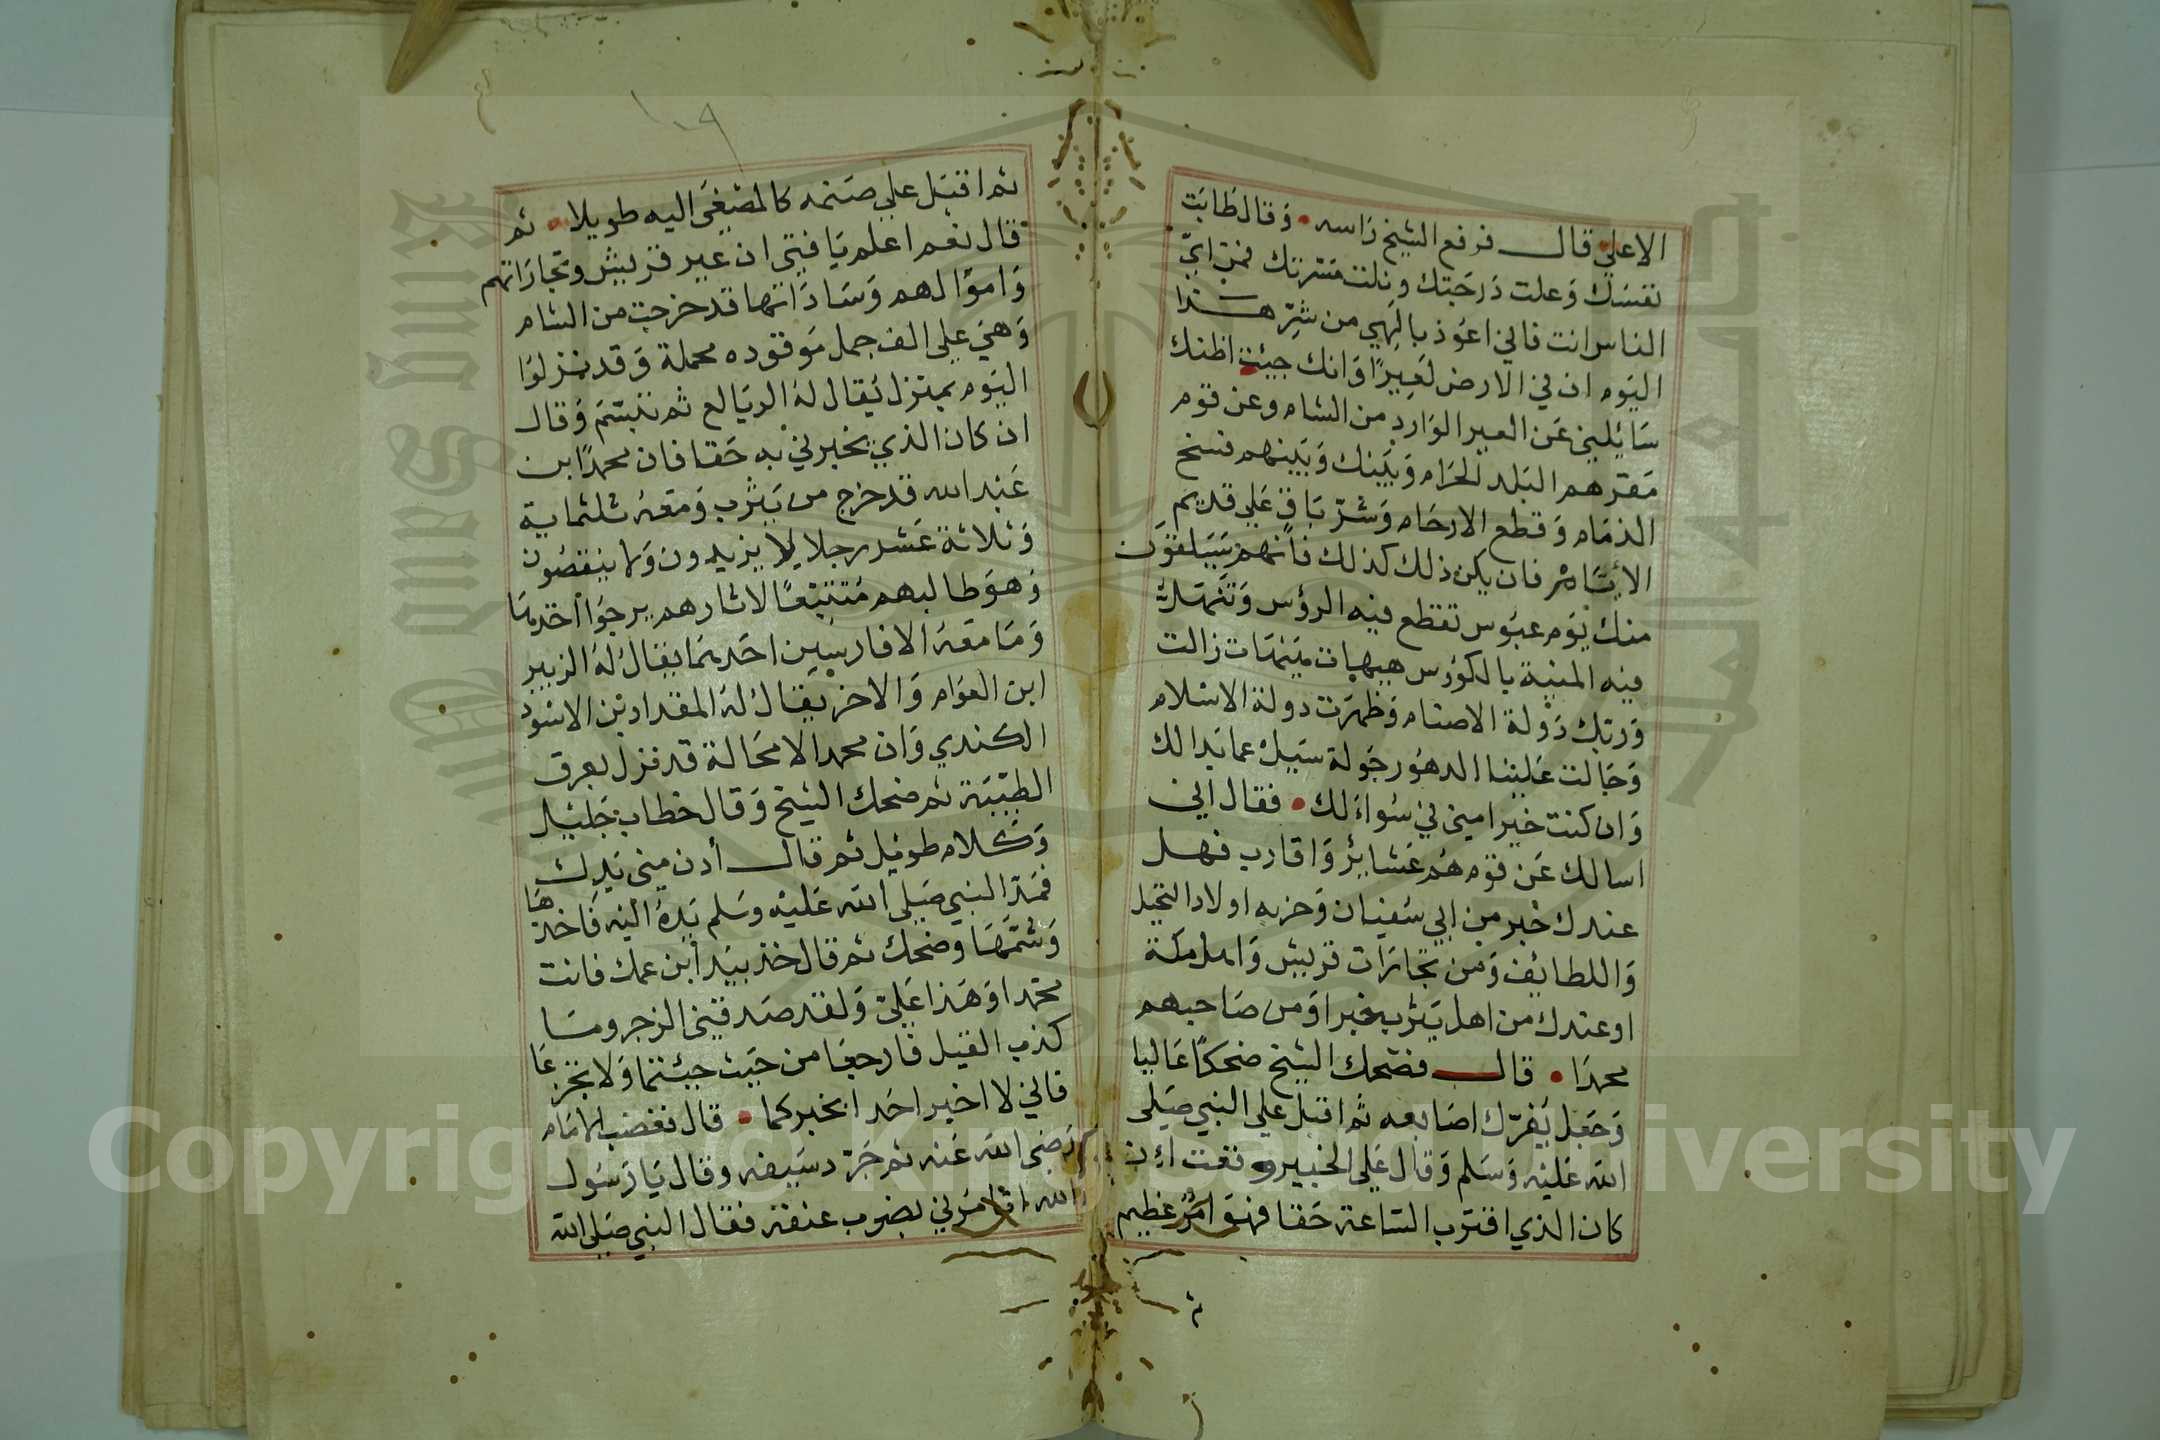 الاعلي قال فرفع الشيخ رَاسه • وَقال طَابَت
نفسَك وَعلت دَرجَتك ونلت مسَرتك فمن ايّ
الناس انت فاني اعوُذ بالهي من شرّ هذا
اليَوم ان في الارض لعَيرًا وَانك جيئت اظنك
سَايُليني عَن العير الوَارد من الشام وعن قوم
مَقرهم البَلد الحرَام وَبَينك وَبَينهم فسخ
الذمَام وَقطع الارحَام وَشرّ بَاقٍ عَلي قديم
الايَّام فان يكن ذلك كذلك فانهم سَيَلقوَن
منك يَوم عبوُس تقطع فيه الرؤس وَ
فيه المنية بالكؤس هيهات هَيهَات زالت
وَربك دَوْلة الاصنام وَظهرَت دولة الاسْلام
وَجَالت عَليْنا الدهوُر جَولة سَيل عما بَدا لك
وَان كنت خَبرا ميني في سُواءَ لك • فقال اني
اسالك عَن قوَم هُم عَشايرُ وَاقارب فهل
عندك خبر من ابي سُفيان وَحزبه اولاد النجل
وَاللطايُف وَمن تجارَات قريش وَاهل مكة
اوعندك من اهل يَثرب خبرا وَمن صَاحبهم
محمدَا • قال فضحك الشيخ ضحكًا عَاليا
وَجَعَل يَفرّك اصَابعه ثم اقبَل علي النبي صَلى
الله عَليْه وَسَلم وَقال عَلي الخبير وقعت ان
كان الذي اقترب السَاعة حَقا فهوَ امرٌ عَظيم
ثم
١٠٩
ثم اقبَل علي صَنمه كالمصْغَي اليه طويلا • ثم
قال نعم اعلم يَا فتى ان عير قريش وتجارَاتهم
وَاموَالهم وَسَادَاتها قد خرجَت من الشام
وَهيَ علي الف جمل مَوقوده محملة وَقد نزلوَا
اليَوم بمنزل يُقال لهُ الديَالع ثم تبَسّمَ وَقال
ان كان الذي يخبرني به حَقا فان محمدًا ابن
عَبد الله قد خرج من يَثرب وَمعَهُ ثلثماية
وَثلاثة عَشر رجلا لا يزيدون وَلا ينقصُون
وَهوَ طالبهم مُتتبْعًا لاثارهم يرجوَا اخدهَا
وَمَا مَعَهُ الا فارسَين احَدهمَا يقال لهُ الزبير
ابن العوَام وَالاخر يقال لهُ المقداد بْن الاسْود
الكندي وَان محمدا لا محَالة قد نزل بعرق
الطبَيَة ثم ضحك الشيخ وَقال خطاب جَليْل
وَكلام طويْل ثم قال أدن مني يَدك
فمَدّ النبي صَلى الله عَليْه وسَلم يَدهُ اليْه فاخذهَا
وَشمّهَا وضحك ثم قال خذ بيَد ابن عمك فانت
محمّدا وَهَذا عَليّ وَلقد صَدقني الزجر ومَا
كذب القيل فارجعَا من حَيث جيئتما وَلا تجزعَا
فاني لا اخبر احَد ابخبركما • قال فغضب الامَام
رَضي الله عَنه ثم جَرّد سَيفه وقال يَا رَسُول
الله اتامرُني بضرب عنقه فقال النبي صَلى الله